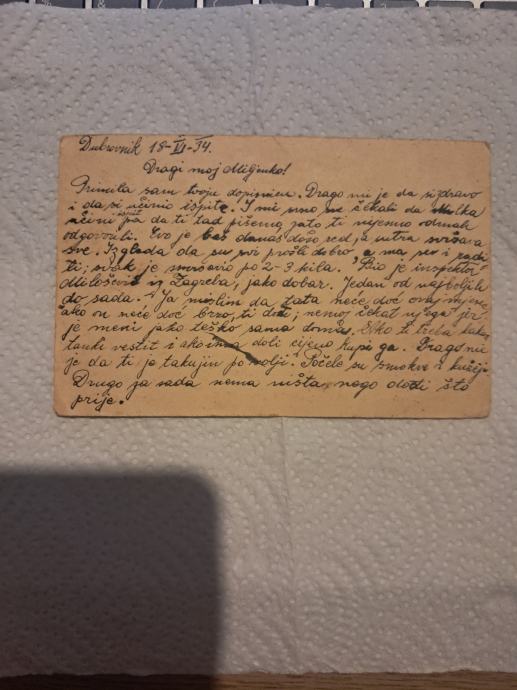 Dubrovnik 18-VI-34.
Dragi moj Miljenko!
Primila sam tvoju dopisnicu. Drago mi je da si zdravo
i da si učinio ispite. I mi smo se čekali da Milka
učini pa da ti tad pišemo, zato ti nijesmo odmah
odgovorili. Evo je baš danas došo red, a sutra svršava
sve. Izgleda da su svi prošli dobro, a ma su i radi
ti, svak je smršavio po 2-3 kila. Bio je inspektor
Milošević iz Zagreba, jako dobar. Jedan od najboljih
do sada. Ja mislim da tata neće doć ovaj mjesec
ako on neće doć brzo, ti dođi, nemoj čekat njega jer
je meni jako teško sama doma. Ako ti treba kaki
tanki vestit i ako ima doli cijeno kupi ga. Drago mi
je da ti je takujin po volji. Počele su smokve i
Drugo za sada nema ništa, nego dođi što
prije.